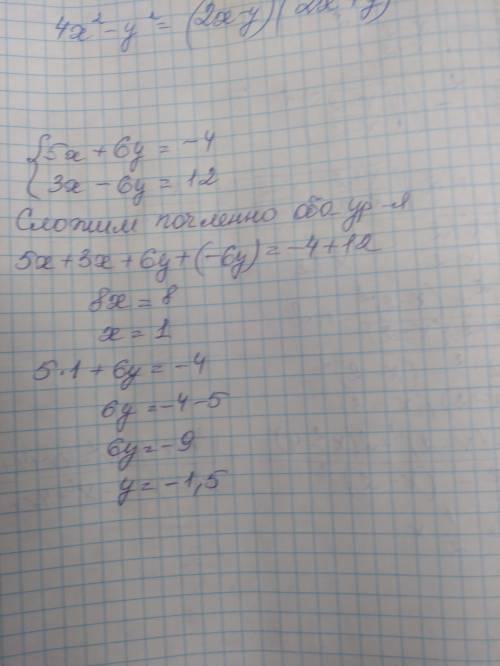 4x² - y² = (2x-y)(2x+y)
{5x + 6y = -4
{3x - 6y = 12
Сложим почленно оба ур-я
5x+3x+6y+(-6y)=-4+12
8x = 8
x = 1
5·1 + 6y = -4
6y = -4-5
6y = -9
y = -1,5